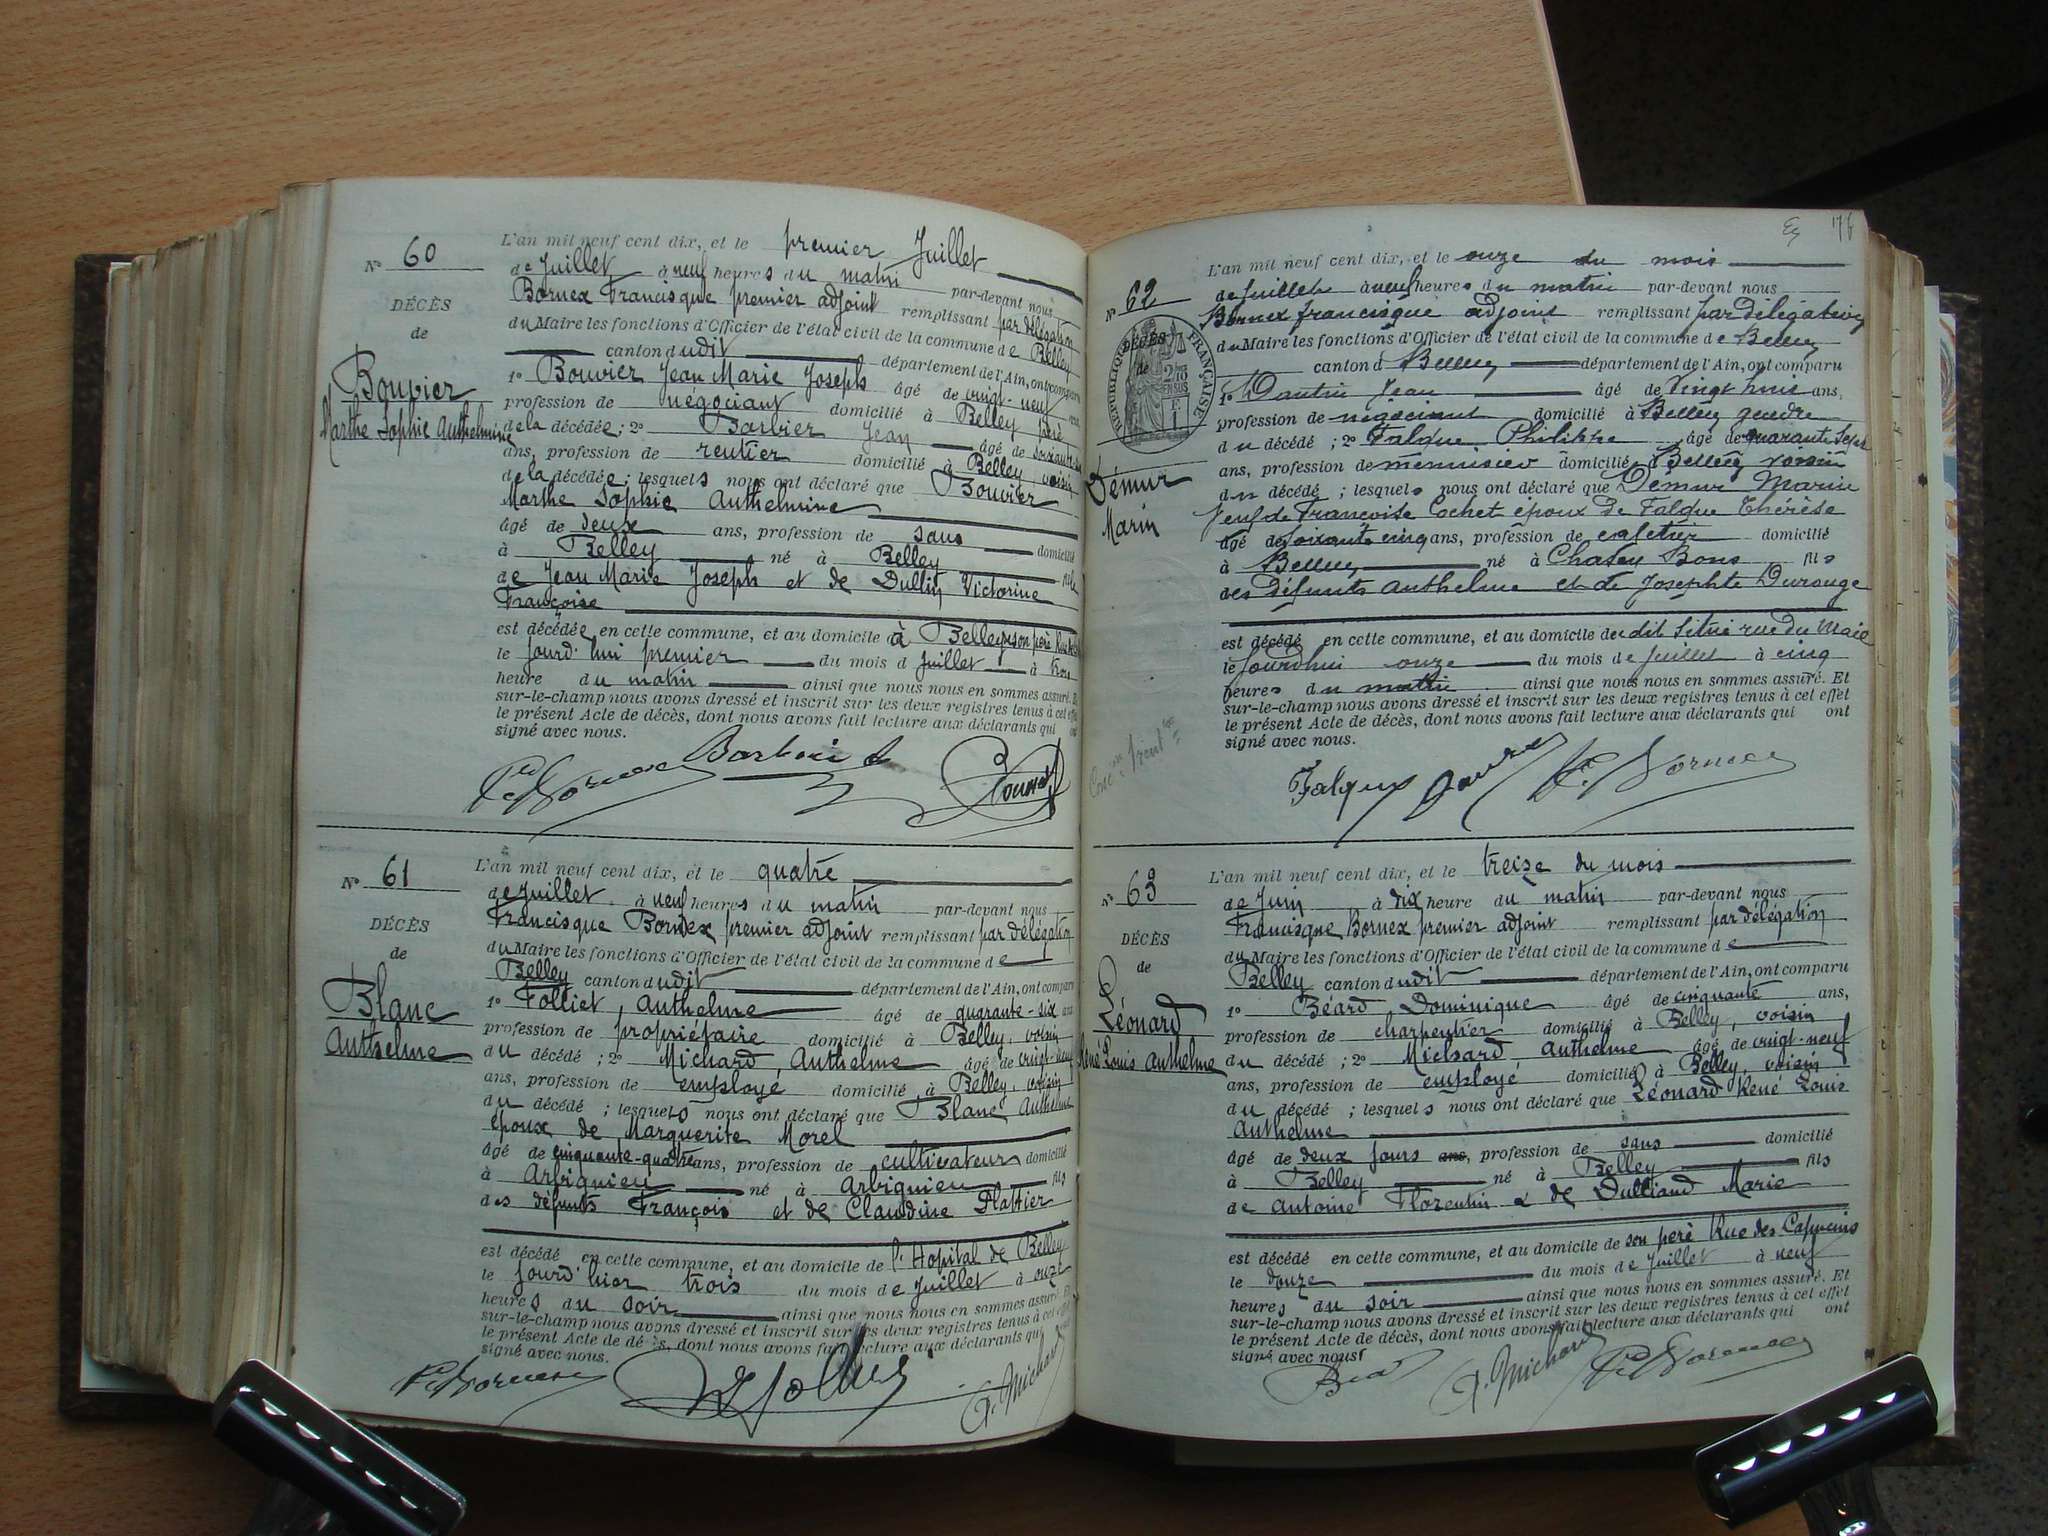 N° 60
DÉCÈS
de
Bouvier
Marthe Sophie Anthelmine
L'an mil neuf cent dix, et le premier Juillet
de Juillet à neuf heures du matin par-devant nous
Bornex Francisque premier adjoint remplissant par délégation
du Maire les fonctions d'Officier de l'état civil de la commune de Belley
canton dudit département de l'Ain, ont comparu
1° Bouvier Jean Marie Joseph âgé de vingt-neuf ans,
profession de négociant domicilié à Belley père
de la décédée; 2° Barbier Jean âgé de
ans, profession de rentier domicilié à Belley, voisin
de la décédée; lesquels nous ont déclaré que Bouvier
Marthe Sophie Anthelmine
âgé de deux ans, profession de sans domicilié
à Belley né à Belley
de Jean Marie Joseph et de Dullin Victorine fille
Françoise
est décédée en cette commune, et au domicile à Belley son père
le jourd'hui premier du mois d Juillet à trois
heure du matin ainsi que nous nous en sommes assuré. Et
sur-le-champ nous avons dressé et inscrit sur les deux registres tenus à cet effet
le présent Acte de décès, dont nous avons fait lecture aux déclarants qui ont
signé avec nous.
N° 61
DÉCÈS
de
Blanc
Anthelme
L'an mil neuf cent dix, et le quatre
de Juillet à neuf heures du matin par-devant nous
Francisque Bornex premier adjoint remplissant par délégation
du Maire les fonctions d'Officier de l'état civil de la commune de
Belley canton dudit département de l'Ain, ont comparu
1° Folliet, Anthelme âgé de quarante-six ans
profession de propriétaire domicilié à Belley, voisin
du décédé; 2° Michard, Anthelme âgé de vingt-neuf
ans, profession de employé domicilié à Belley, voisin
du décédé; lesquels nous ont déclaré que Blanc Anthelme
époux de Marguerite Morel
âgé de cinquante-quatre ans, profession de cultivateur domicilié
à Arbignieu né à Arbignieu fils
des défunts François et de Claudine Plattier
est décédé en cette commune, et au domicile de l'Hopital de Belley
le jourd'hier trois du mois de Juillet à onze
heures du soir ainsi que nous nous en sommes assuré. Et
sur-le-champ nous avons dressé et inscrit sur les deux registres tenus à cet effet
le présent Acte de décès, dont nous avons fait lecture aux déclarants qui
signé avec nous.
A. Michard
N° 62
RÉPUBLIQUE FRANÇAISE
DÉCÈS
de
Démur
Marin
L'an mil neuf cent dix, et le onze du mois
de Juillet à neuf heures du matin par-devant nous
Bornex francisque adjoint remplissant par délégation
du Maire les fonctions d'Officier de l'état civil de la commune de Belley
canton d Belley département de l'Ain, ont comparu
1° Dantin Jean âgé de vingt huit ans,
profession de négociant domicilié à Belley gendre
du décédé; 2° Falque Philippe âgé de quarante sept
ans, profession de menuisier domicilié à Belley voisin
du décédé; lesquels nous ont déclaré que Demur Marin
veuf de Françoise Cochet époux de Falque Thérèse
âgé de soixante cinq ans, profession de cafetier domicilié
à Belley né à Chazey Bons fils
des défunts Anthelme et de Josephte Durouge
est décédé en cette commune, et au domicile du dit situé rue du Mail
le jourdhui onze du mois de Juillet à cinq
heures du matin ainsi que nous nous en sommes assuré. Et
sur-le-champ nous avons dressé et inscrit sur les deux registres tenus à cet effet
le présent Acte de décès, dont nous avons fait lecture aux déclarants qui ont
signé avec nous.
Falque
N° 63
DÉCÈS
de
Léonard
René Louis Anthelme
L'an mil neuf cent dix, et le treize du mois
de Juin à dix heure du matin par-devant nous
Francisque Bornex premier adjoint remplissant par délégation
du Maire les fonctions d'Officier de l'état civil de la commune de
Belley canton dudit département de l'Ain, ont comparu
1° Béard Dominique âgé de cinquante ans,
profession de charpentier domicilié à Belley, voisin
du décédé; 2° Michard, Anthelme âgé de vingt-neuf
ans, profession de employé domicilié à Belley, voisin
du décédé; lesquels nous ont déclaré que Léonard René Louis
Anthelme
âgé de deux jours ans, profession de sans domicilié
à Belley né à Belley fils
de Antoine Florentin & de Dulliand Marie
est décédé en cette commune, et au domicile de son père Rue des Capucins
le douze du mois de Juillet à neuf
heures du soir ainsi que nous nous en sommes assuré. Et
sur-le-champ nous avons dressé et inscrit sur les deux registres tenus à cet effet
le présent Acte de décès, dont nous avons fait lecture aux déclarants qui ont
signé avec nous
A. Michard